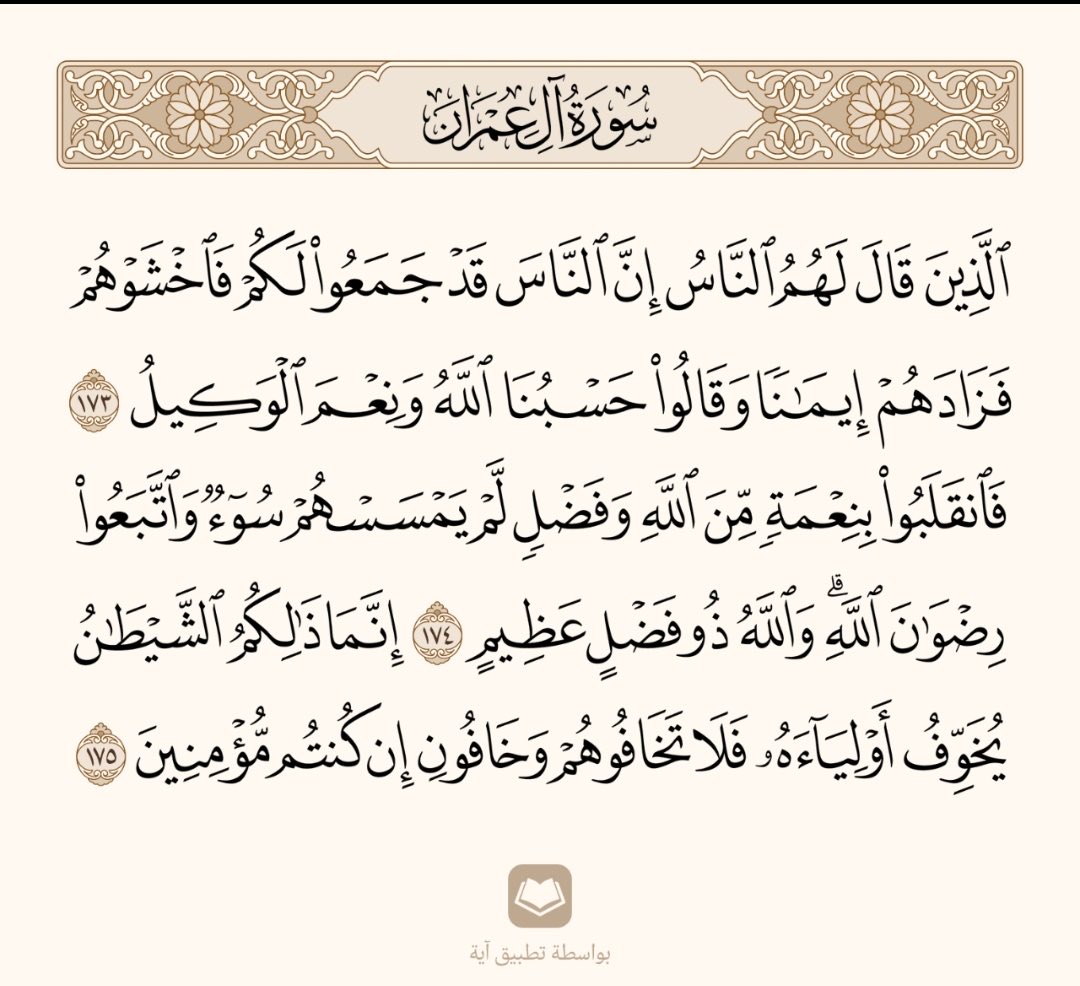 سُورَةُ آلِ عِمْرَانَ
ٱلَّذِينَ قَالَ لَهُمُ ٱلنَّاسُ إِنَّ ٱلنَّاسَ قَدْ جَمَعُوا۟ لَكُمْ فَٱخْشَوْهُمْ
فَزَادَهُمْ إِيمَـٰنًا وَقَالُوا۟ حَسْبُنَا ٱللَّهُ وَنِعْمَ ٱلْوَكِيلُ ١٧٣
فَٱنقَلَبُوا۟ بِنِعْمَةٍ مِّنَ ٱللَّهِ وَفَضْلٍ لَّمْ يَمْسَسْهُمْ سُوٓءٌ وَٱتَّبَعُوا۟
رِضْوَٰنَ ٱللَّهِ ۗ وَٱللَّهُ ذُو فَضْلٍ عَظِيمٍ ١٧٤ إِنَّمَا ذَٰلِكُمُ ٱلشَّيْطَـٰنُ
يُخَوِّفُ أَوْلِيَآءَهُۥ فَلَا تَخَافُوهُمْ وَخَافُونِ إِن كُنتُم مُّؤْمِنِينَ ١٧٥
بواسطة تطبيق آية